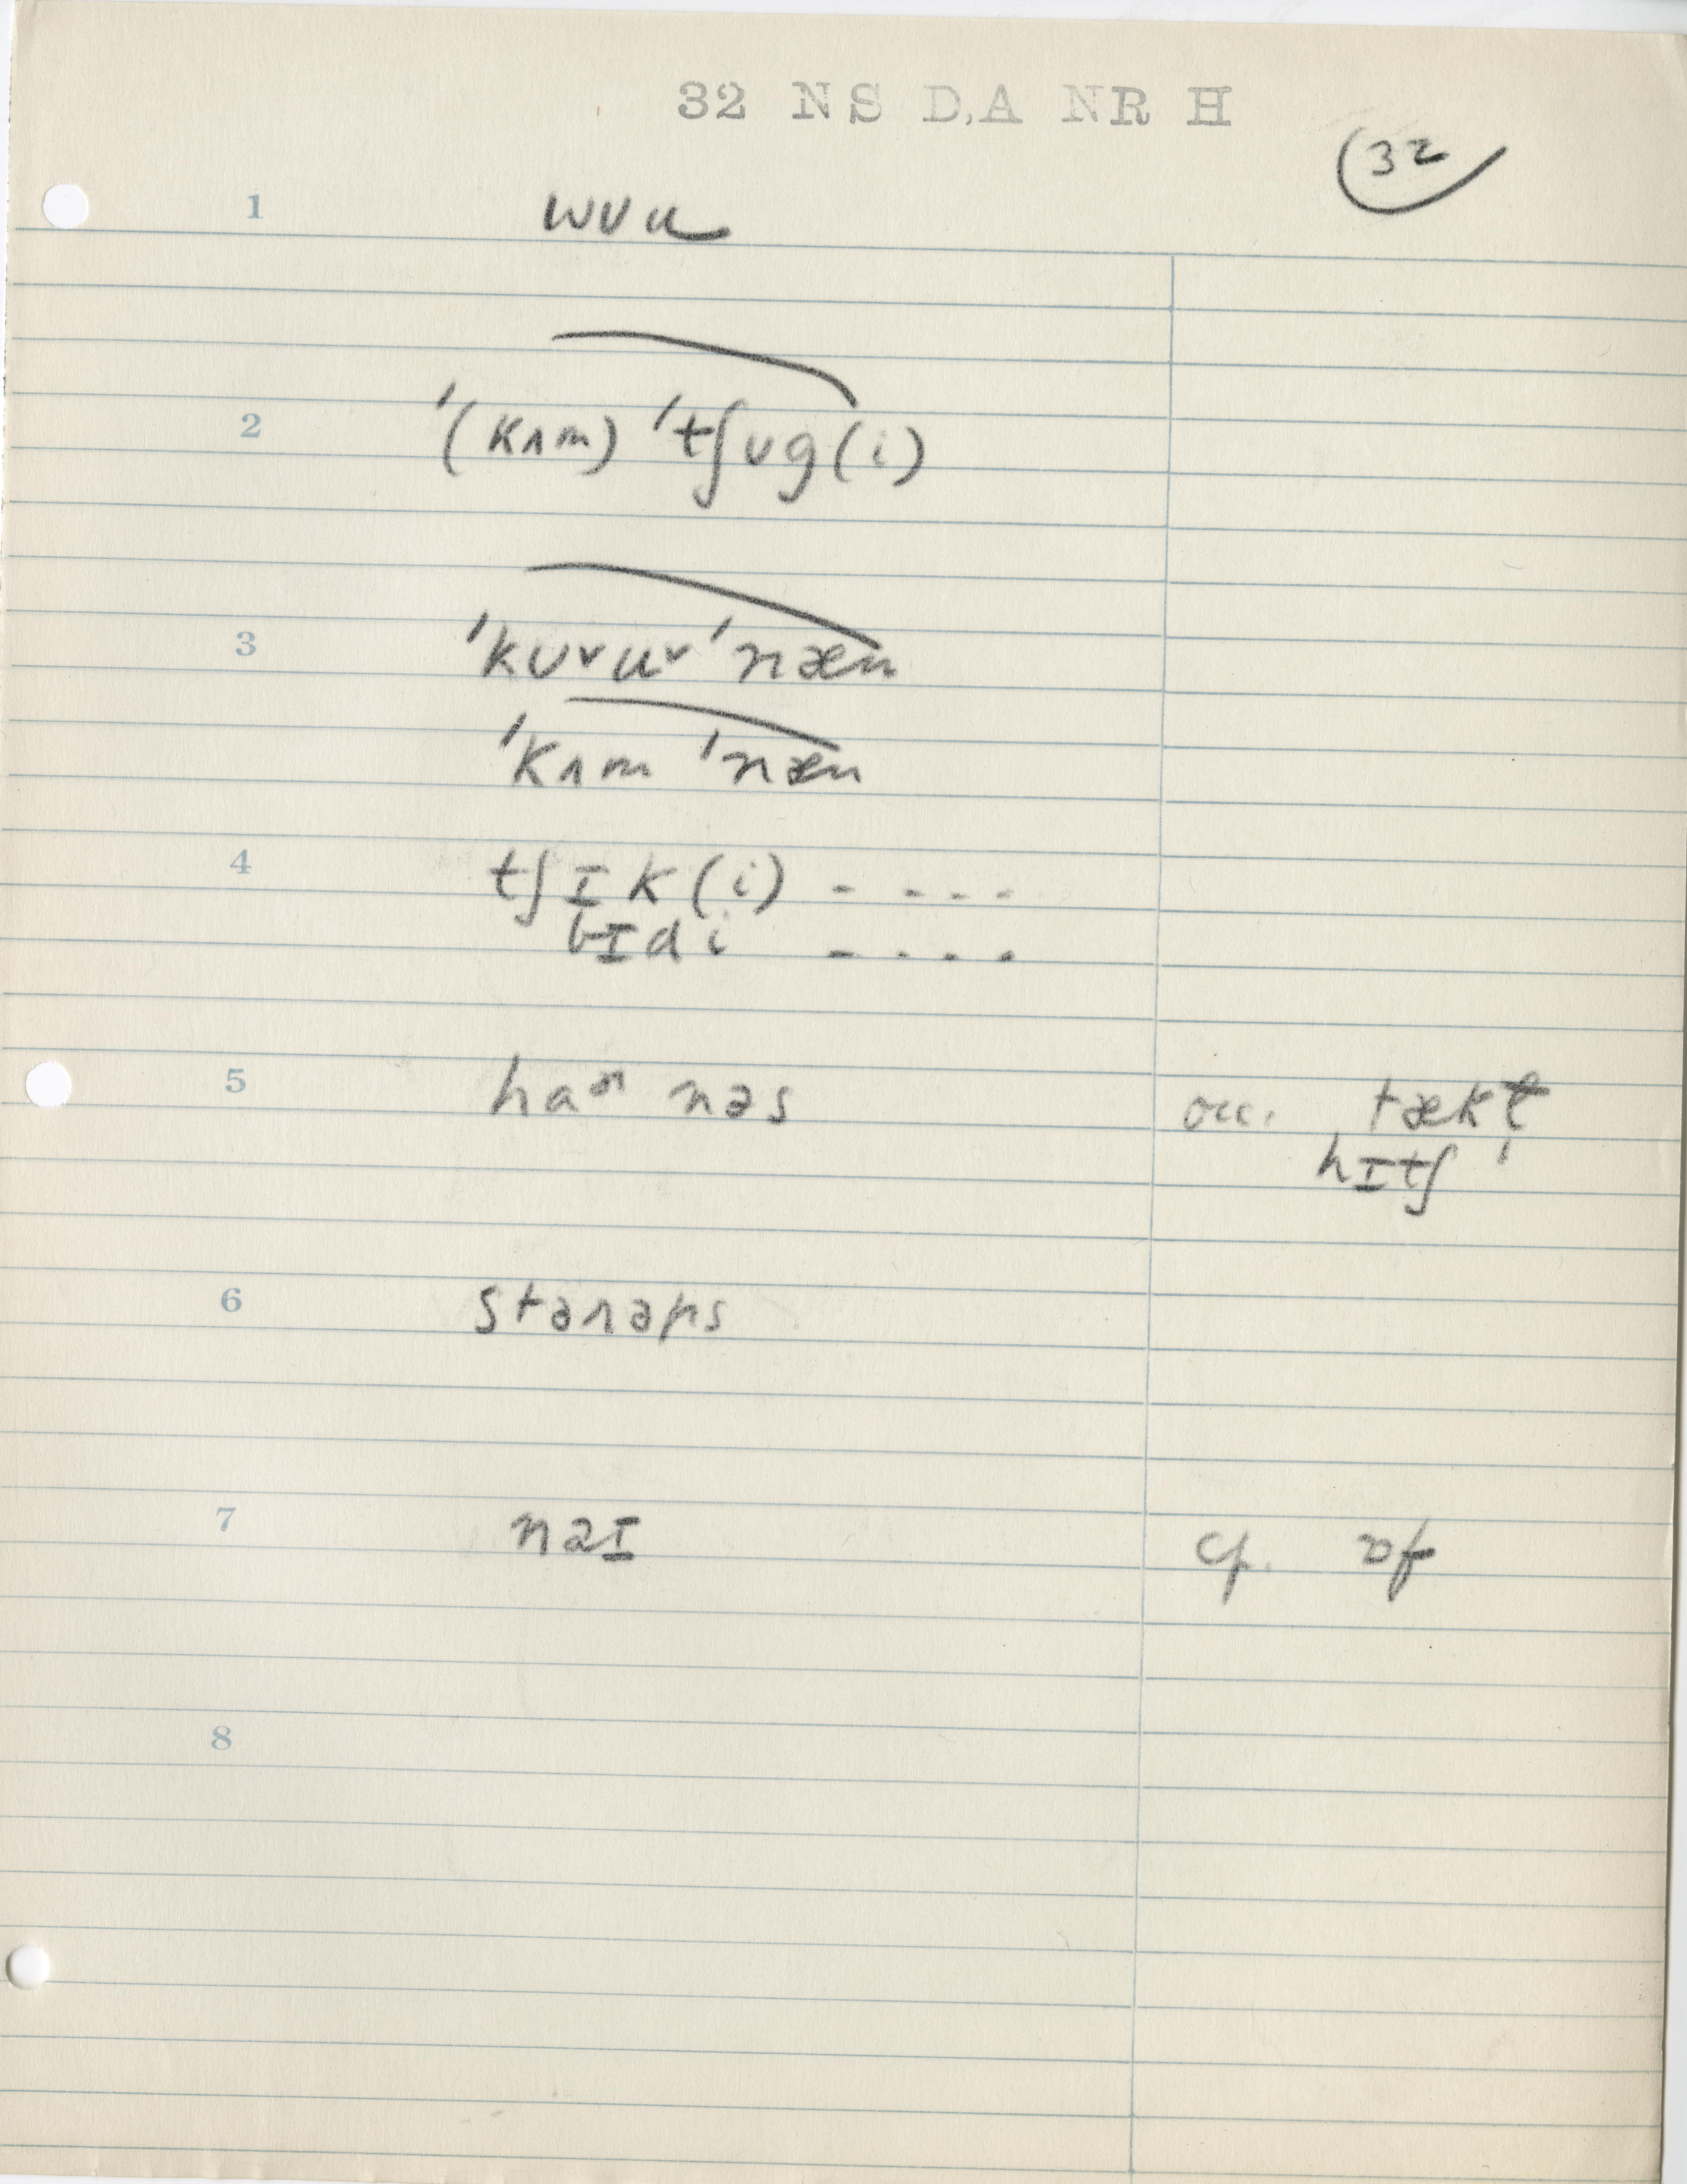 32 NS D,A NR H
32
1 wʊu
2 '(kʌm) 'tʃʊg(i)
3 'kʊ˅u˅ 'næn
'kʌm 'næn
4 tʃɪk(i) - - - - -
bɪdi - - - -
5 nəs occ. tækt
hɪtʃ
6 stɚəps
7 nəɪ cf. ɒf
8